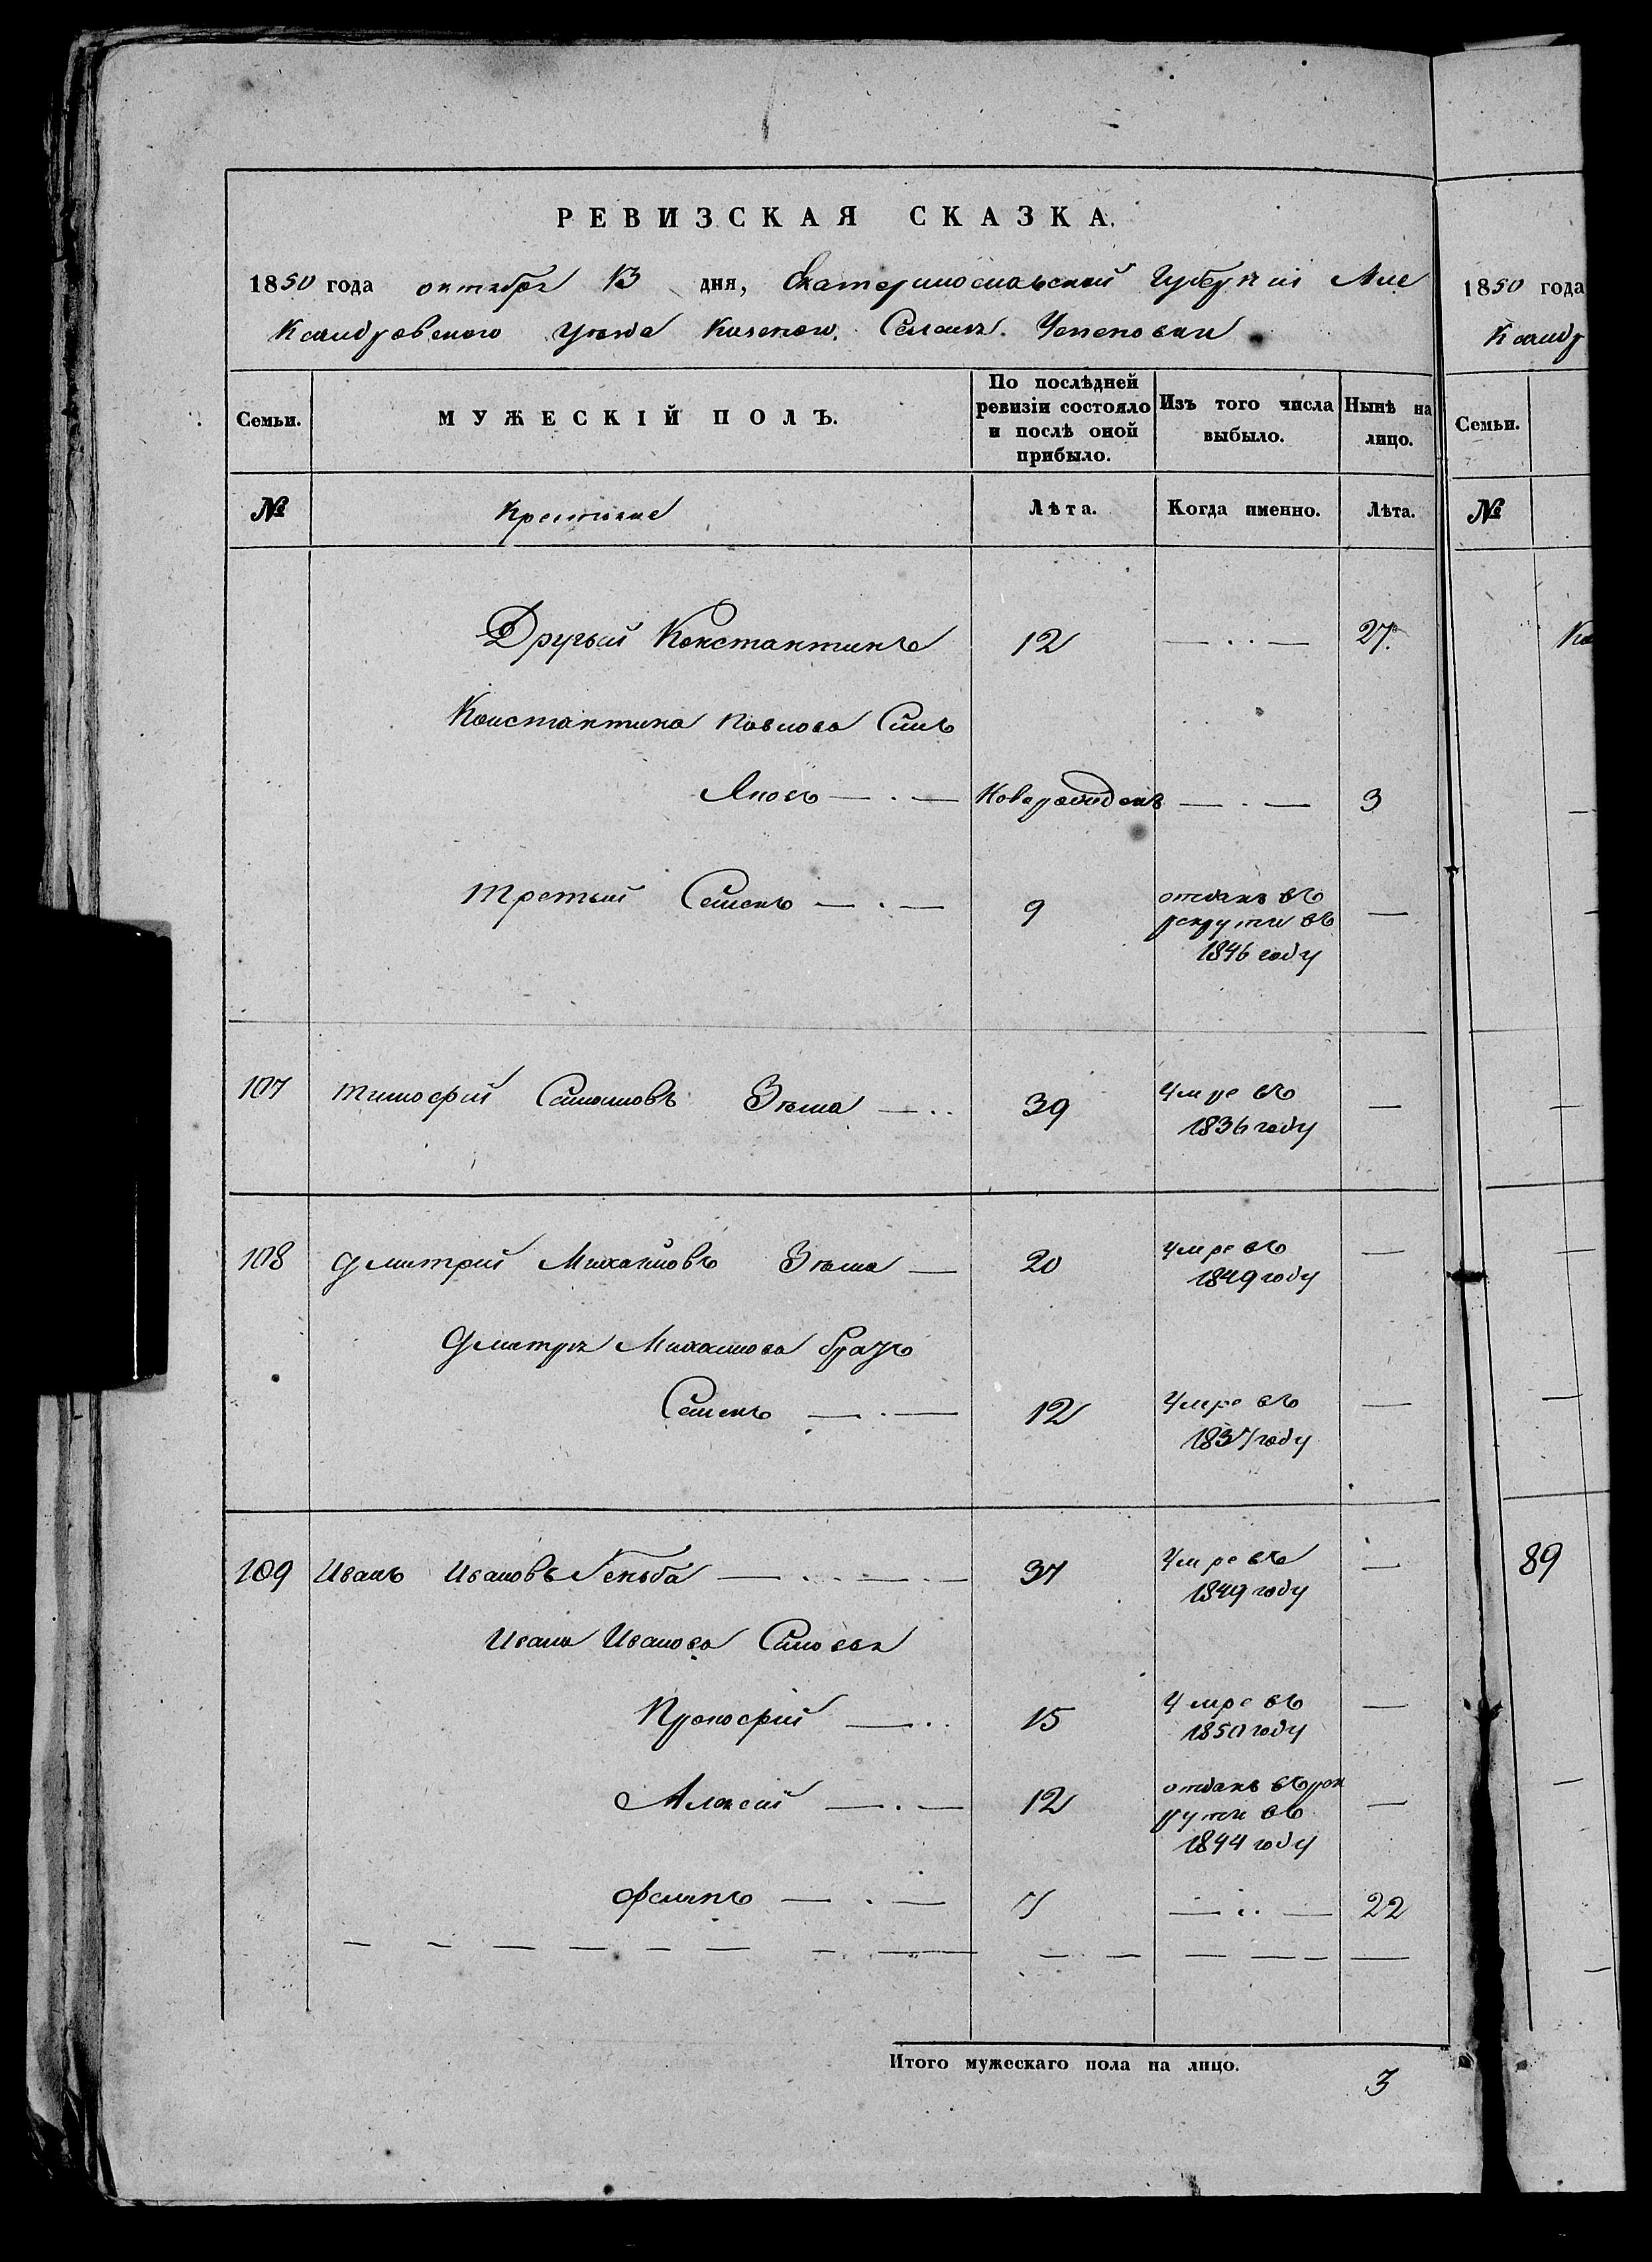 РЕВИЗСКАЯ СКАЗКА.
1850 года октября 13 дня, Екатеринославской Губерніи Але
ксандровского уезда казеного Селенія
Семьи.
МУЖЕСКІЙ ПОЛЪ.
По послѣдней ревизіи состояло и послѣ оной прибыло.
Изъ того числа выбыло.
Нынѣ на лицо.
№
Крестьяне
Лѣта.
Когда именно.
Лѣта.
Другый Константинъ 12 — . . — 27.
Константина Павлова Сынъ
Яковъ — . — Новорожденъ — . — 3
Третый Семенъ — . — 9 отданъ въ —
рекруты въ
1846 году
107 Тимофей 39 Умре въ —
1836 году
108 Дмитрий Михайловъ 20 умре въ —
1849 году
Дмитрия Михайлова братъ
Семенъ — . — 12 Умре въ —
1837 году
109 Иванъ Ивановъ 37 Умре въ —
1849 году
Ивана Иванова Сыновья
Прокофий — . . 15 Умре въ —
1850 году
Алексей — . — 12 отданъ въ рек —
руты въ
1844 году
Филипъ — . — 7 — . . — 22
Итого мужескаго пола на лицо.
3
1850 года
ксандр
Семьи.
№
89